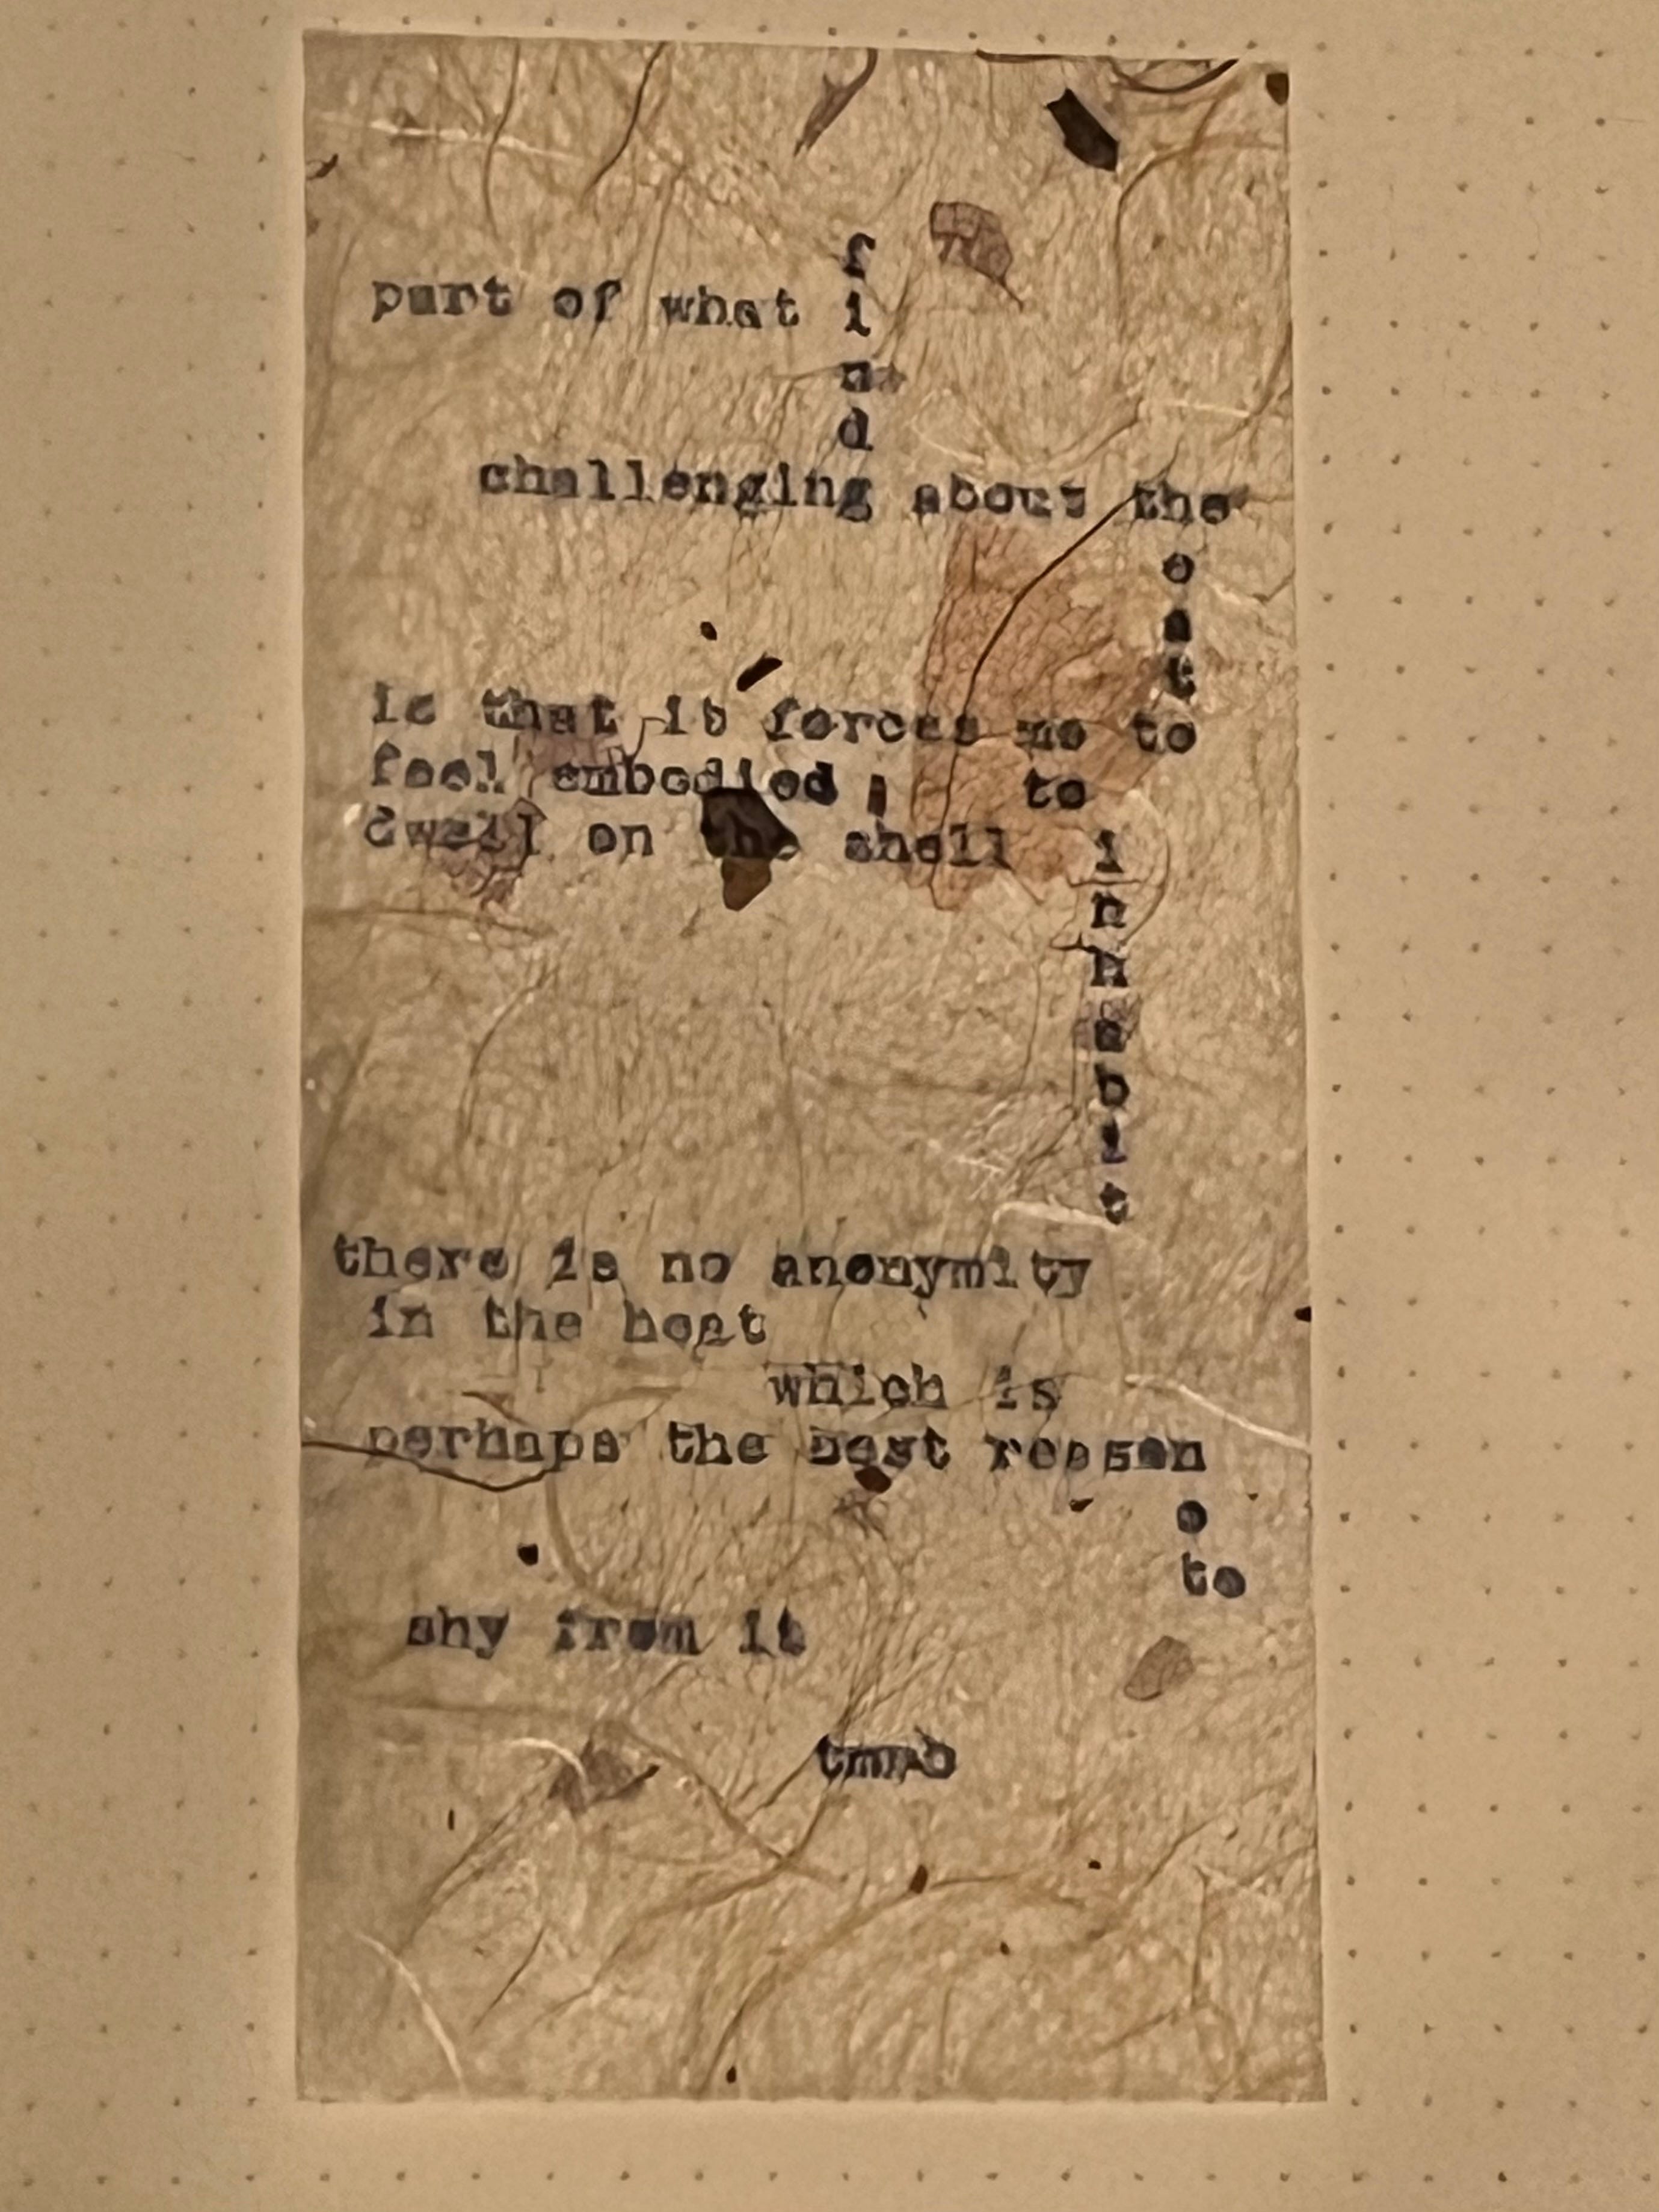 f
part of what i
n
d
challenging about the
e
a
t
is that it forces me to
feel embodied to
dwell on the shell i
n
h
a
b
i
t
there is no anonymity
in the heat
which is
perhaps the best reason
o
to
shy from it